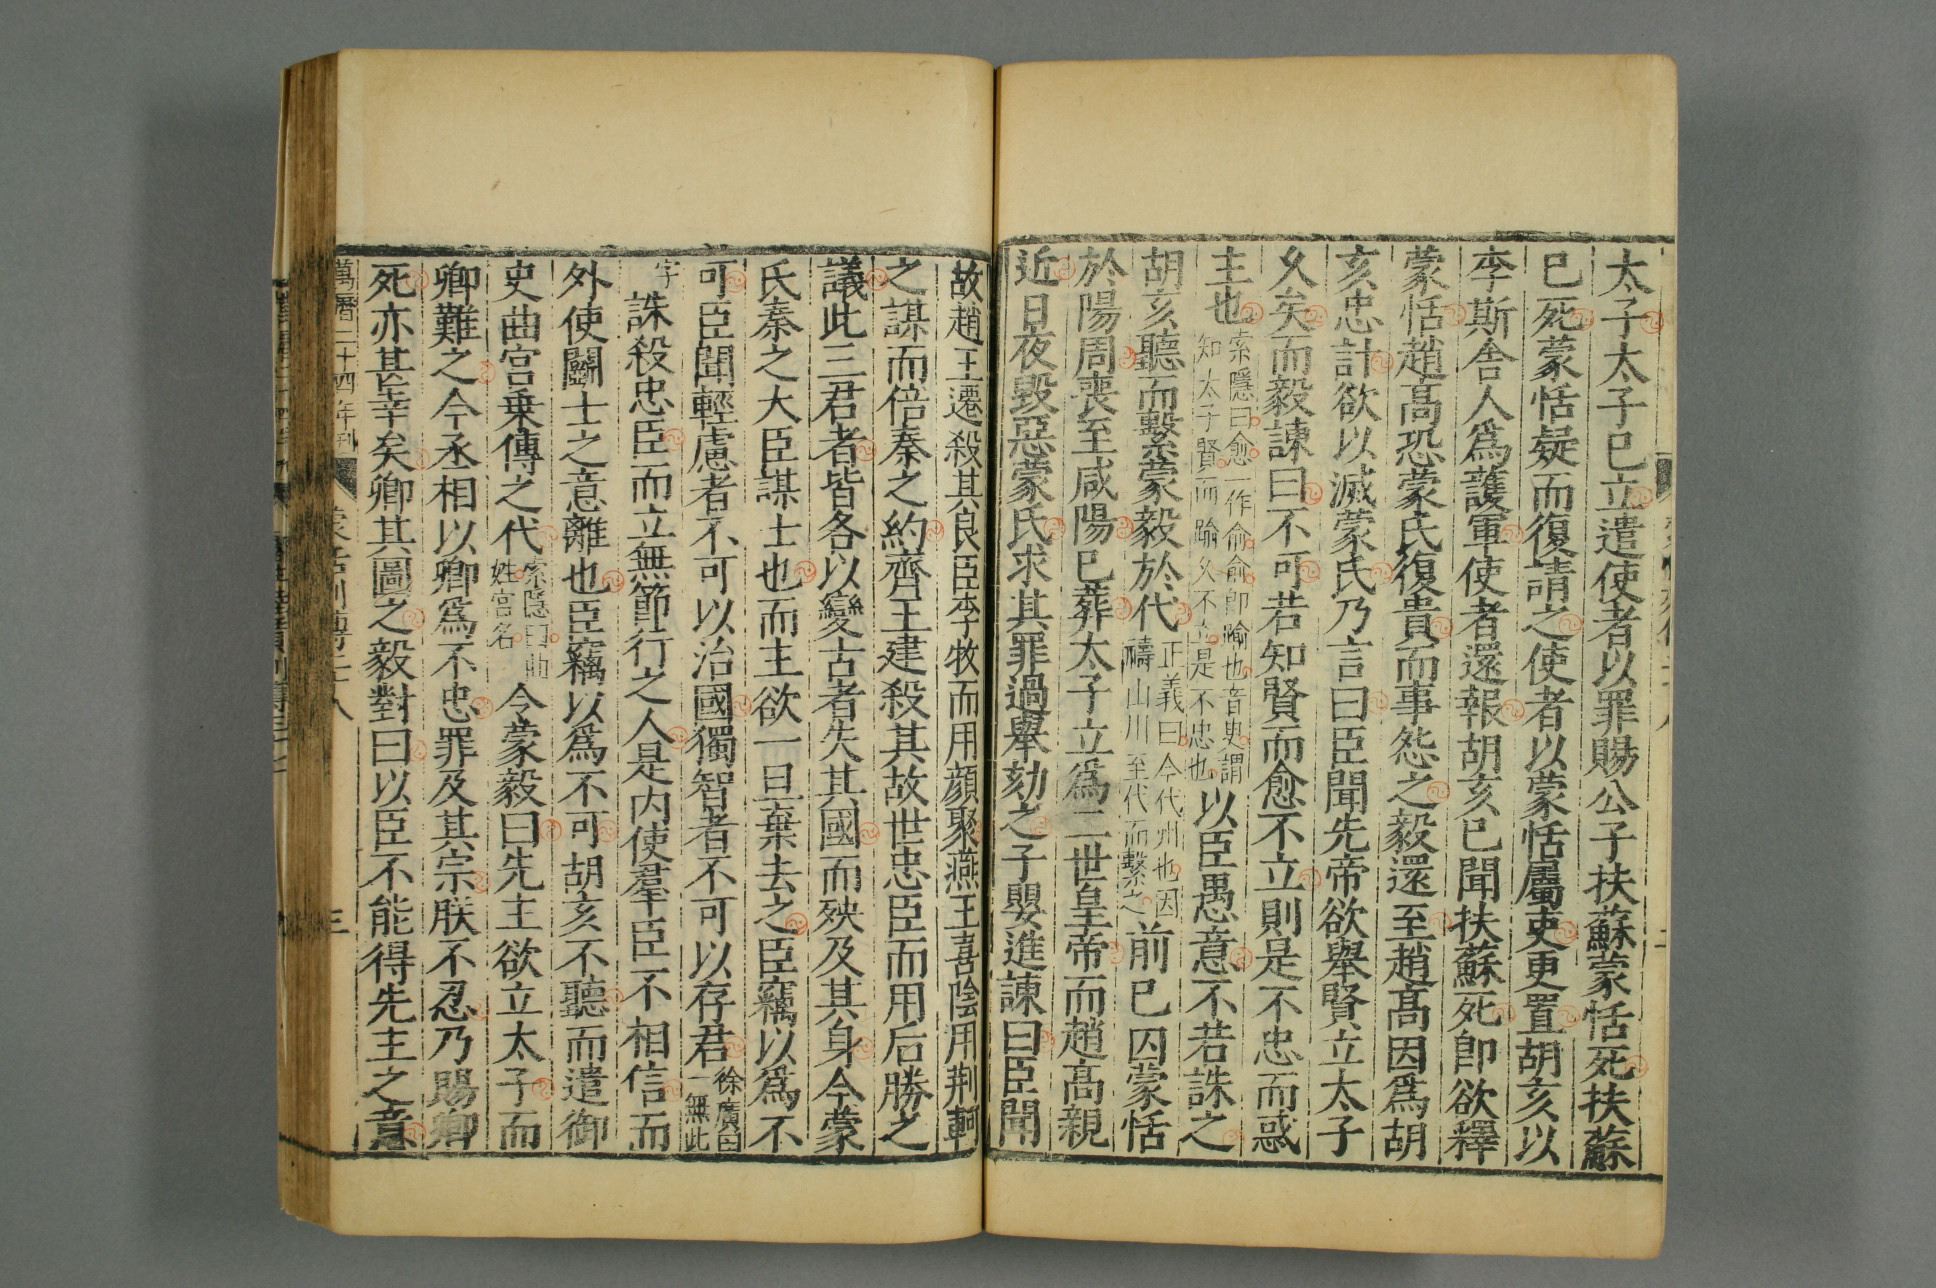 太子太子已立遣使者以罪賜公子扶蘇蒙恬死扶蘇
已死蒙恬疑而復請之使者以蒙恬屬吏更置胡亥以
李斯舍人爲護軍使者還報胡亥已聞扶蘇死卽欲釋
蒙恬趙高恐蒙氏復貴而事怨之毅還至趙高因爲胡
亥忠計欲以滅蒙氏乃言曰臣聞先帝欲舉賢立太子
久矣而毅諫曰不可若知賢而愈不立則是不忠而惑
主也索隱曰愈一作俞俞卽踰也音臾謂知太子賢而踰久不立是不忠也以臣愚意不若誅之
胡亥聽而繫蒙毅於代正義曰今代州也因禱山川至代而繫之前已囚蒙恬
於陽周喪至咸陽已葬太子立爲二世皇帝而趙高親
近日夜毀惡蒙氏求其罪過舉劾之子嬰進諫曰臣聞
故趙王遷殺其良臣李牧而用顔聚燕王喜陰用荆軻
之謀而倍秦之約齊王建殺其故世忠臣而用后勝之
議此三君者皆各以變古者失其國而殃及其身今蒙
氏秦之大臣謀士也而主欲一旦棄去之臣竊以爲不
可臣聞輕慮者不可以治國獨智者不可以存君徐廣曰一無此
字誅殺忠臣而立無節行之人是内使羣臣不相信而
外使鬭士之意離也臣竊以爲不可胡亥不聽而遣御
史曲宮乗傳之代索隱曰曲姓宮名令蒙毅曰先主欲立太子而
卿難之今丞相以卿爲不忠罪及其宗朕不忍乃賜卿
死亦甚幸矣卿其圖之毅對曰以臣不能得先主之意
萬曆二十四年刊
三